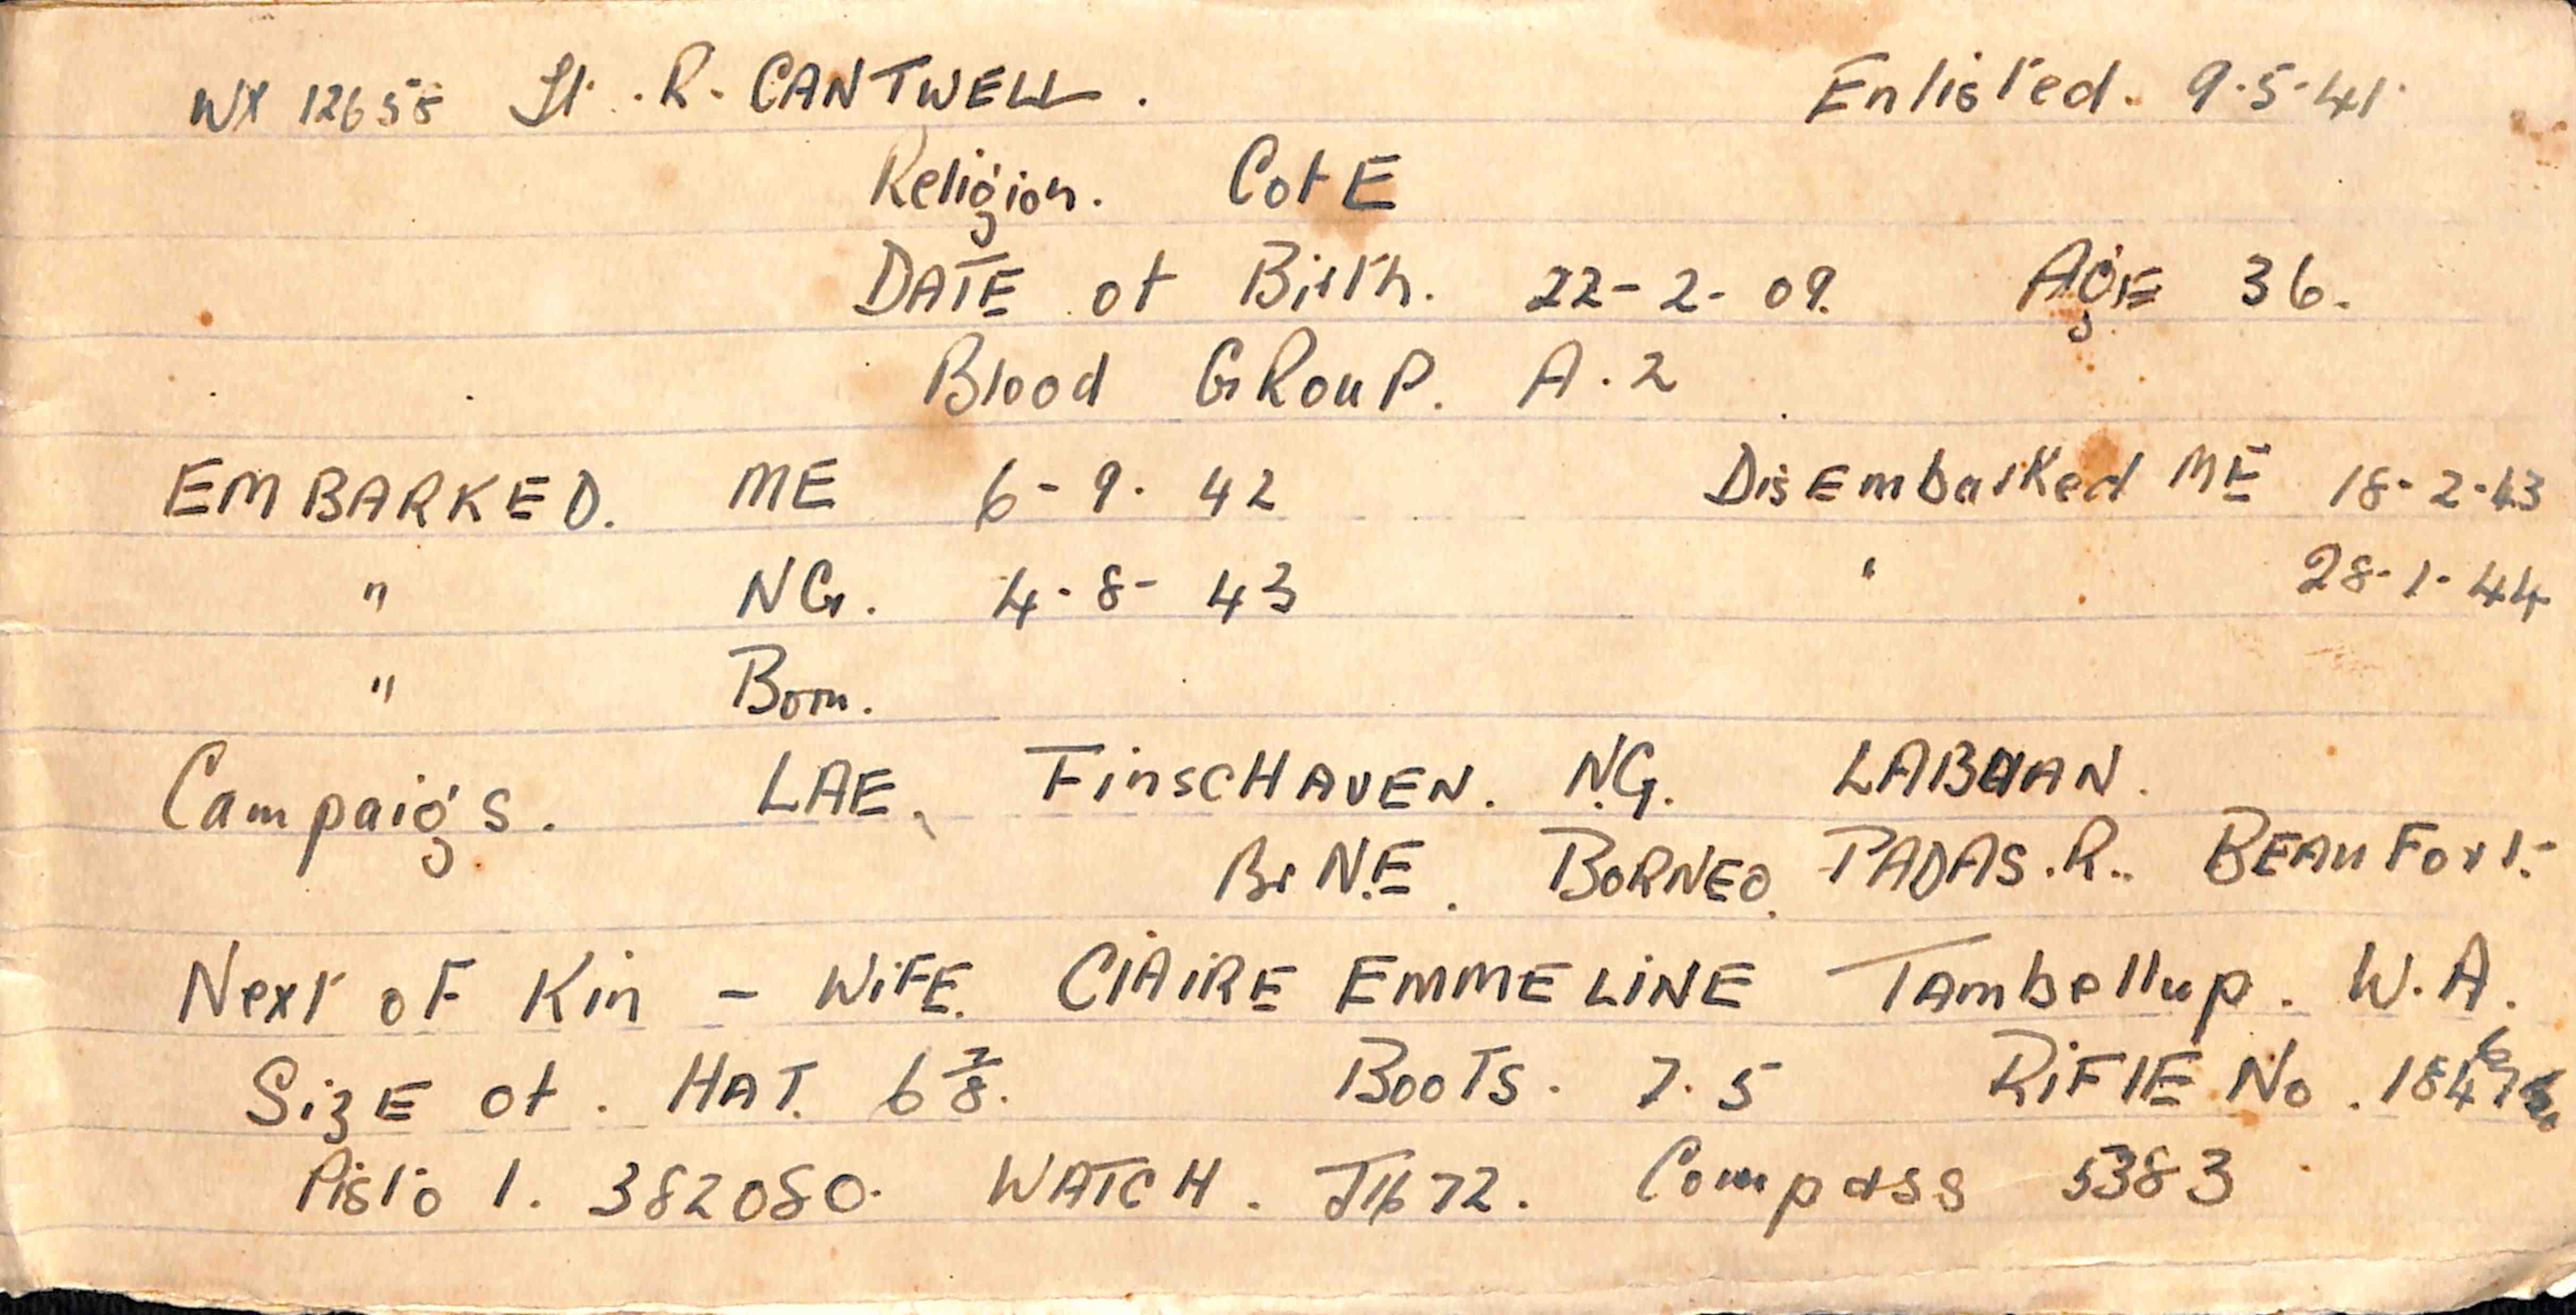 WX 12655 Lt. R. CANTWELL. Enlisted. 9.5.41.
Religion. CofE
DATE of Birth. 22-2-09. AgE 36.
Blood GRouP. A.2
EMBARKED. ME 6-9.42 DisEmbarKed ME 18-2-43
" NG. 4-8-43 " 28-1-44
" Born.
Campaigs. LAE, FinscHAVEN. N.G. LABUAN.
Br N.E. BORNEO. PADAS.R.. BEAuFort.
Next oF Kin - WiFE. ClAiRE EMMELiNE Tambellup. W.A.
SizE of. HAT. 6 7/8. BooTS. 7.5 RiFlE No.
Pistol. 382080. WATCH. Compass 5383